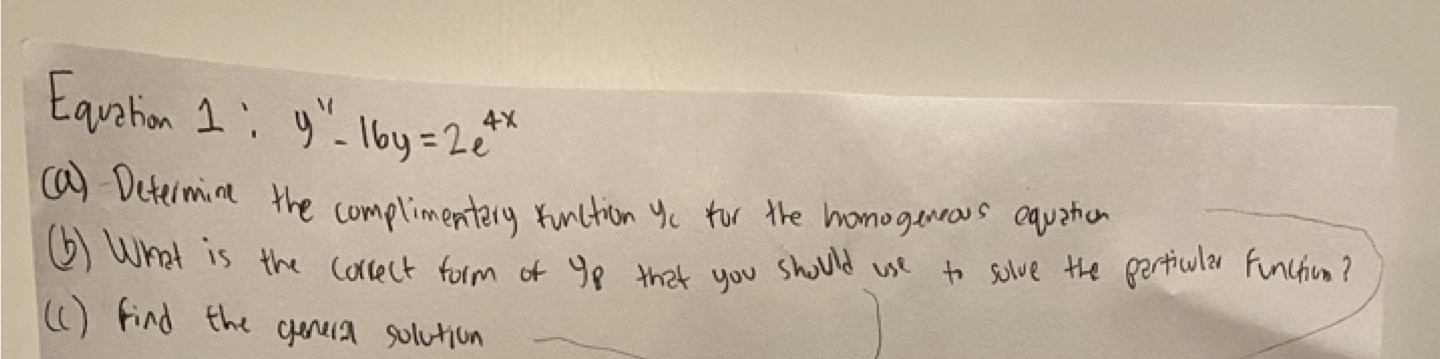 Equation 1: y" - 16y = 2e^4x
(a) Determine the complimentary function yc for the homogeneous equation
(b) What is the correct form of yp that you should use to solve the particular function?
(c) find the general solution